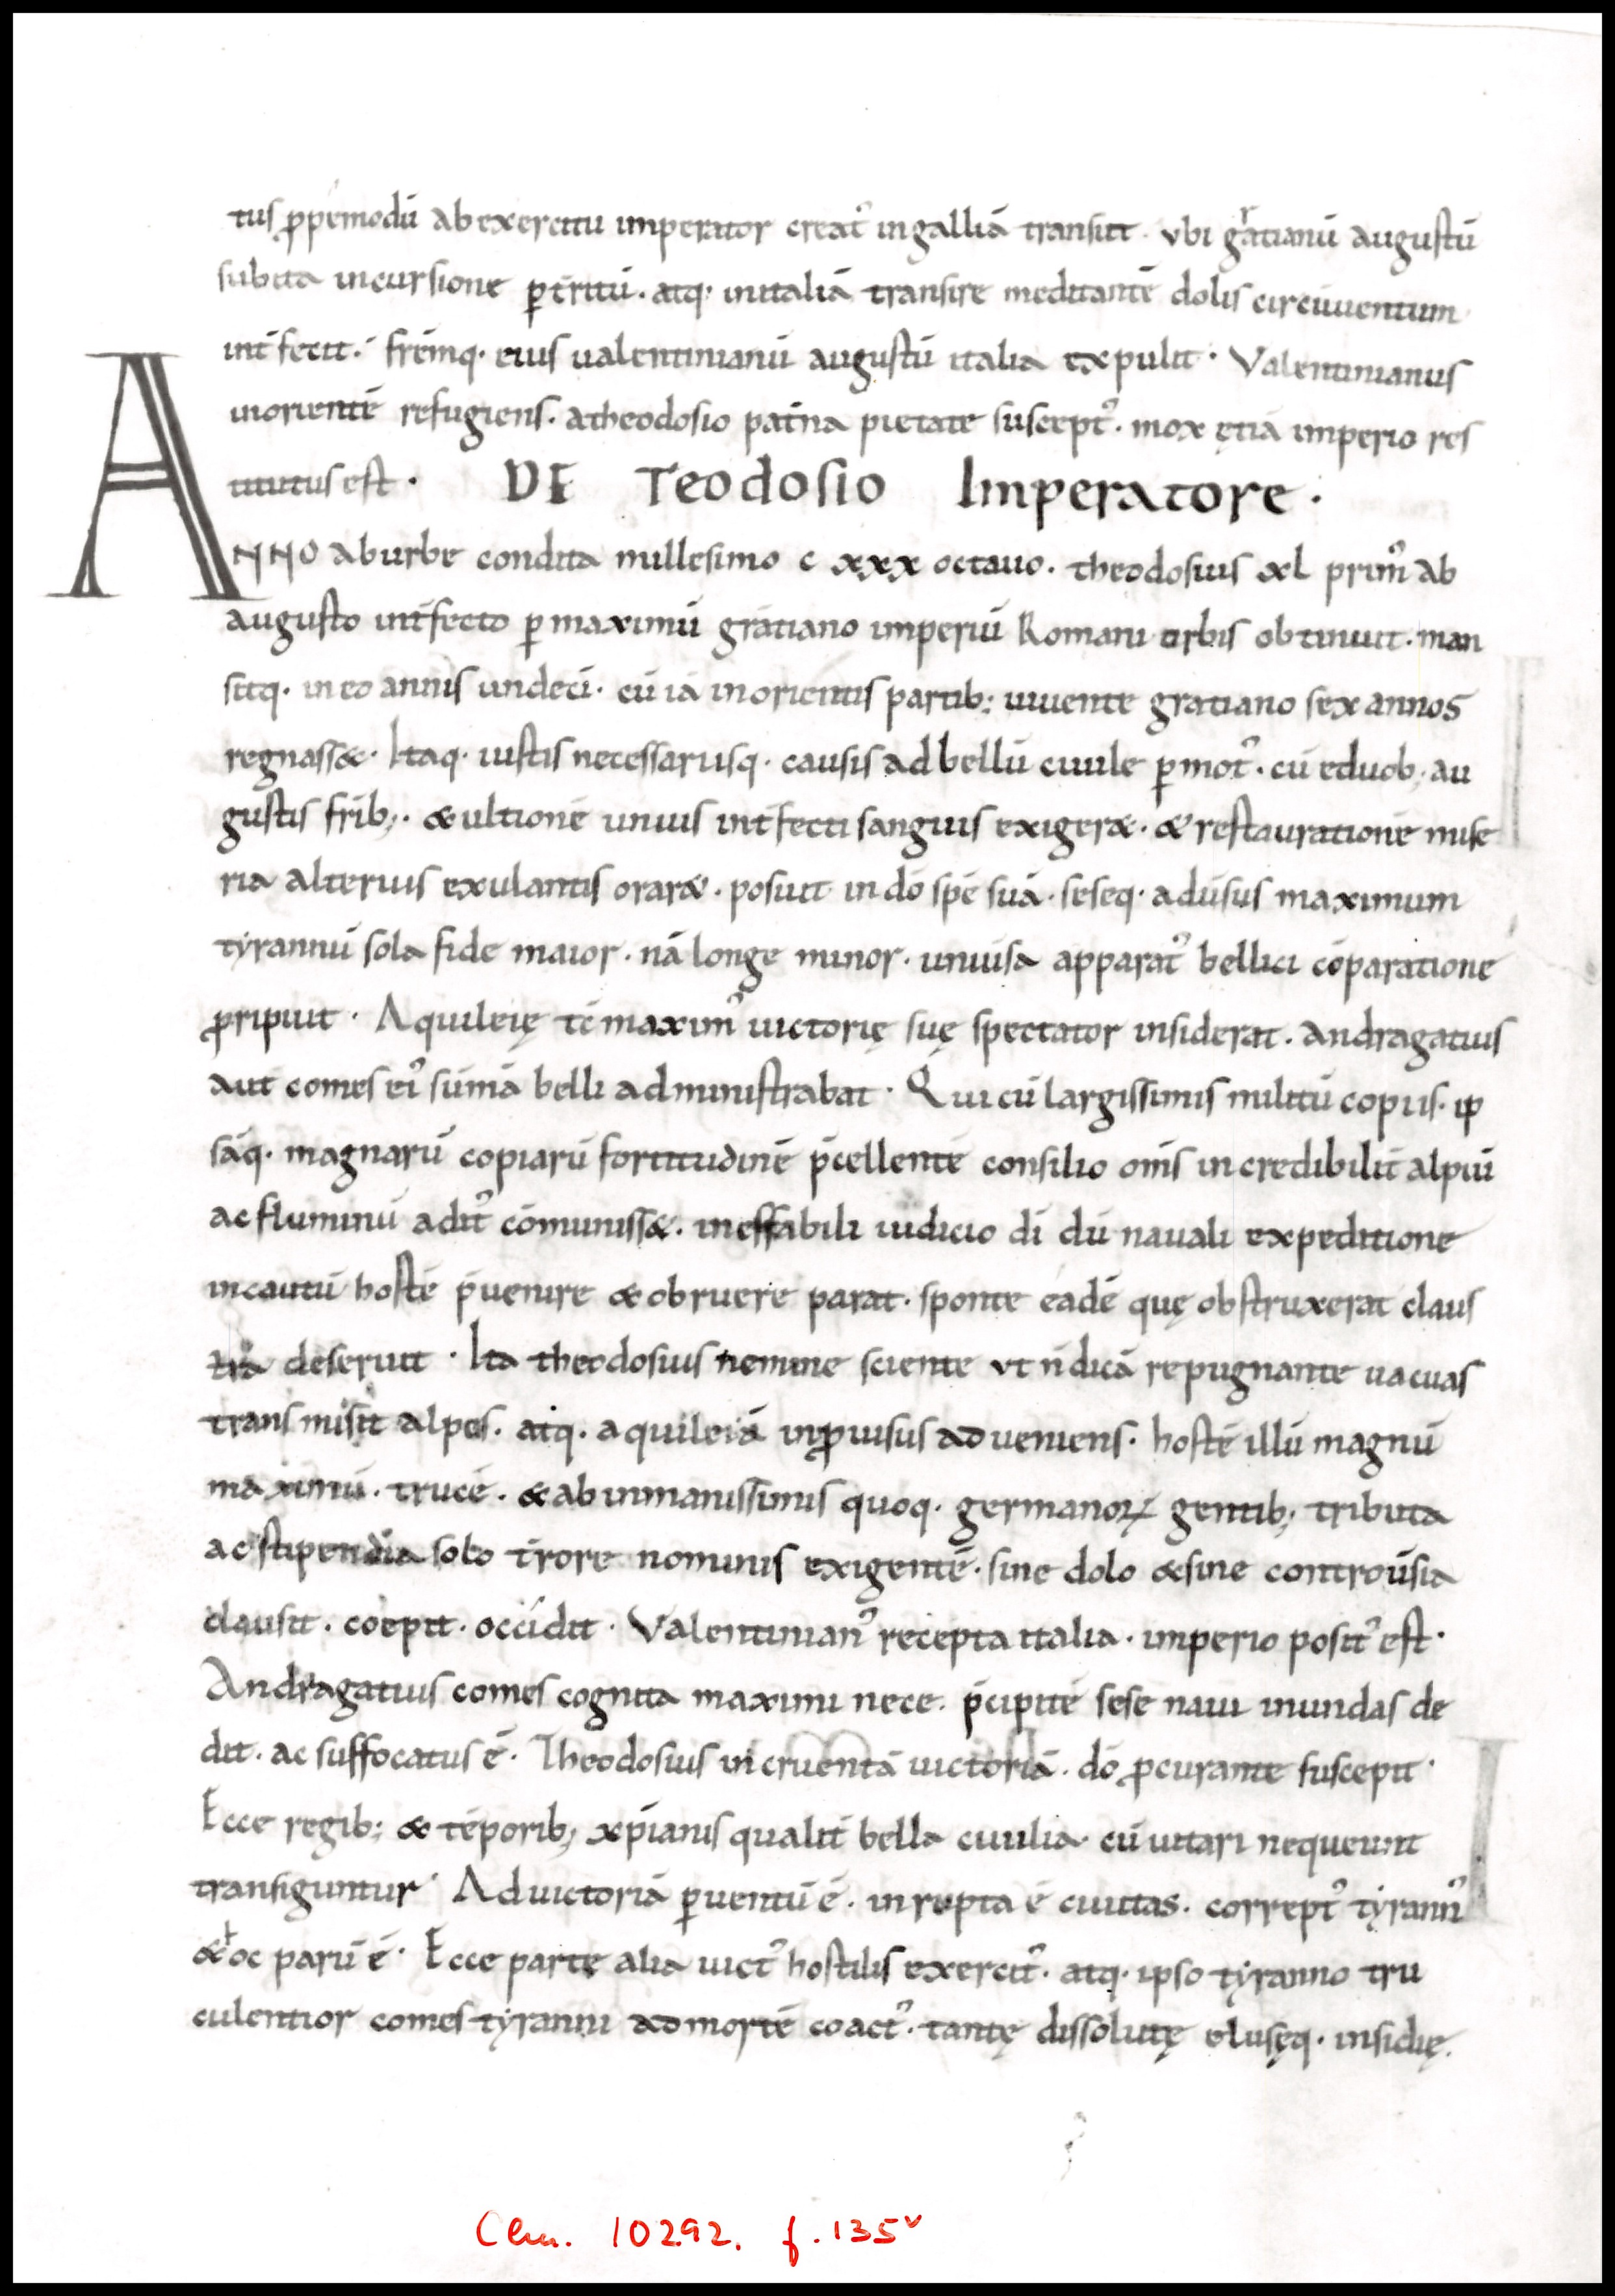 tus ꝓpemodū ab exercitu imperator creatꝰ in galliā transiit · vbi gratianū augustū
subita incursione ꝑt̄ritū · atq· in italiā transire meditantē dolis circūuentum
int̄fecit · fr̄emq· eius ualentinianū augustū italia expulit · Valentinianus
in orientē refugiens · a theodosio pat̄na pietate susceptꝰ · mox ętiā imperio res
titutus est · DE Teodosio Imperatore ·
ANNO ab urbe condita millesimo c xxx octauo · theodosius xl primꝰ ab
augusto int̄fecto ꝑ maximū gratiano imperiū Romani orbis obtinuit · man
sitq· in eo annis undeci · cū iā in orientis partib; uiuente gratiano sex annos
regnass& · Itaq· iustis necessariisq· causis ad bellū ciuile ꝑmotꝰ · cū e duob; au
gustis fr̄ib; · & ultionē unius int̄fecti sanguis exiger& · & restaurationē mise
ria alterius exulantis orar& · posuit in dō spē suā · seseq· adūsus maximum
tyrannū sola fide maior · nā longe minor · uniūsa apparatꝰ bellici cōparatione
ꝓripuit · Aquileię tc̄ maximꝰ uictorię suę spectator insiderat · Andragatius
aut̄ comes eiꝰ sūmā belli administrabat · Qui cū largissimis militū copiis · ip
sāq· magnarū copiarū fortitudinē p̄cellentē consilio om̄s incredibilit̄ alpiū
ac fluminū aditꝰ cōmuniss& · ineffabili iudicio dī dū nauali expeditione
incautū hostē p̄uenire & obruere parat · sponte eadē quę obstruxerat claus
tra deseruit · Ita theodosius nemine sciente vt n̄ dicā repugnante uacuas
transmisit alpes · atq· aquileiā inꝓuisus adueniens · hostē illū magnū
maximū · trucē · & ab inmanissimis quoq· germanoꝝ gentib; tributa
ac stipendia solo t̄rore nominis exigentē · sine dolo & sine controūsia
clausit · coepit · occidit · Valentinianꝰ recepta italia · imperio positꝰ est ·
Andragatius comes cognita maximi nece · p̄cipitē sese naui in undas de
dit · ac suffocatus ē · Theodosius incruentā uictoriā · dō ꝓcurante suscepit ·
Ecce regib; & tēporib; xp̄ianis qualit̄ bella ciuilia · cū uitari nequeunt
transiguntur · Ad uictoriā ꝑuentū ē · inrupta ē ciuitas · correptꝰ tyrannꝰ
& oc parū ē · Ecce parte alia uictꝰ hostilis exercitꝰ · atq· ipso tyranno tru
culentior comes tyranni ad mortē coactꝰ · tantę dissolutę elusęq· insidię ·
Clm. 10292. f. 135ᵛ